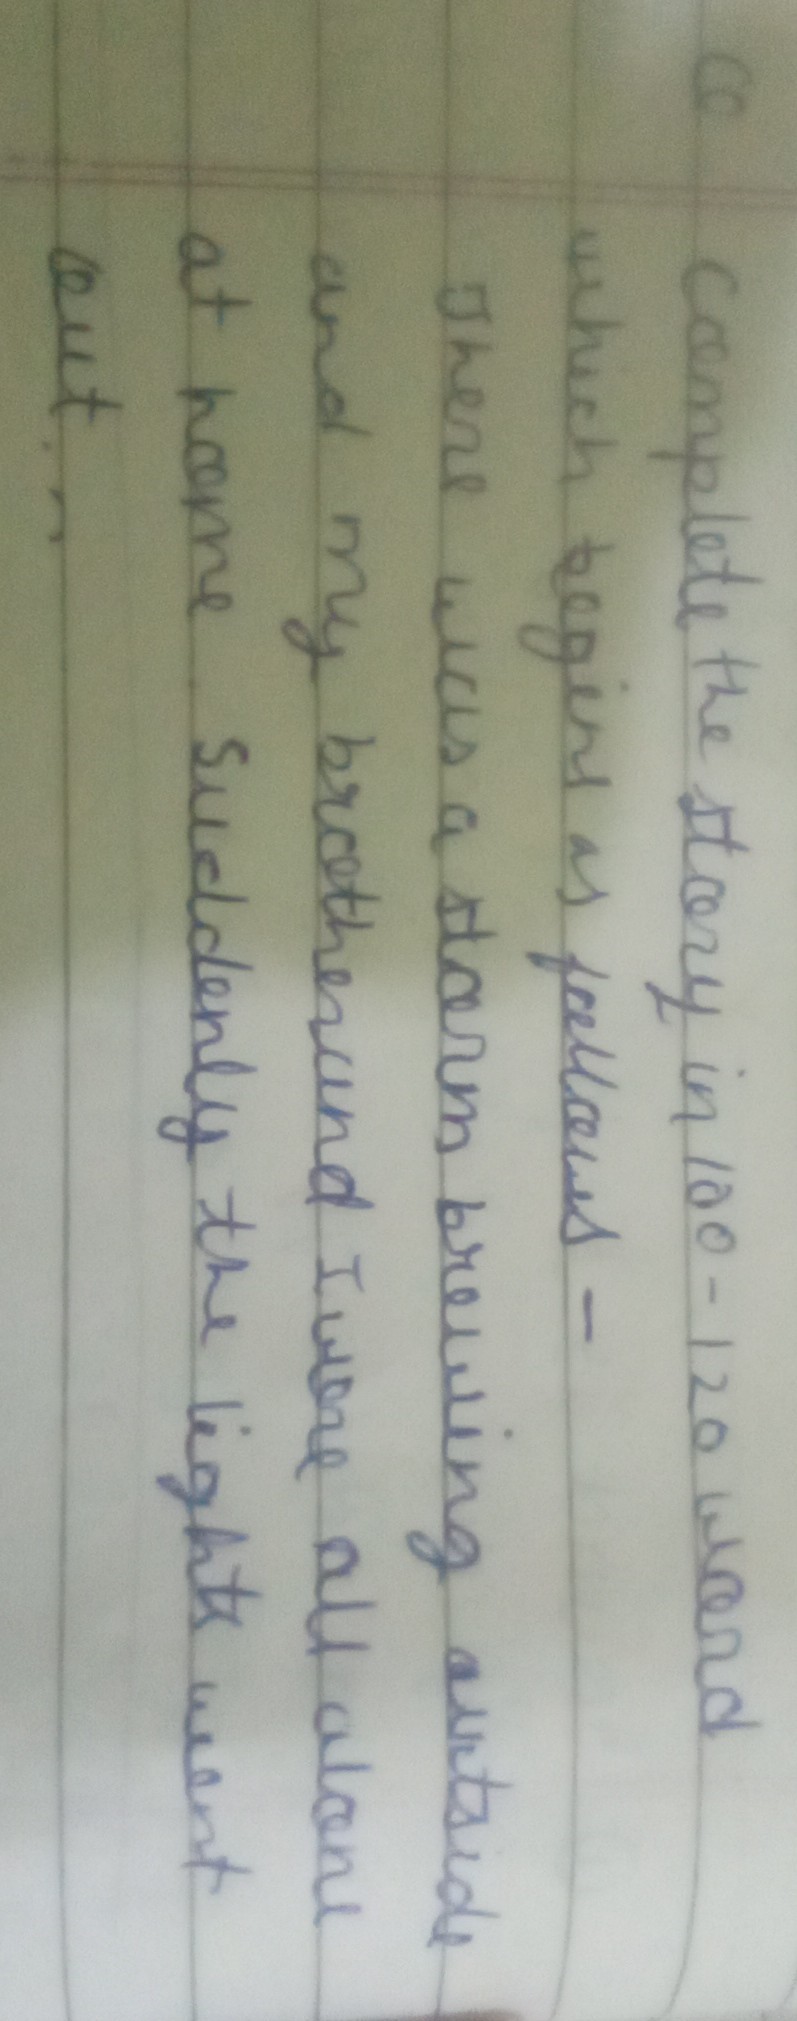 Q Complete the story in 100-120 word
which begins as follows -
There was a storm brewing outside
and my brother and I were all alone
at home. Suddenly the lights went
out.